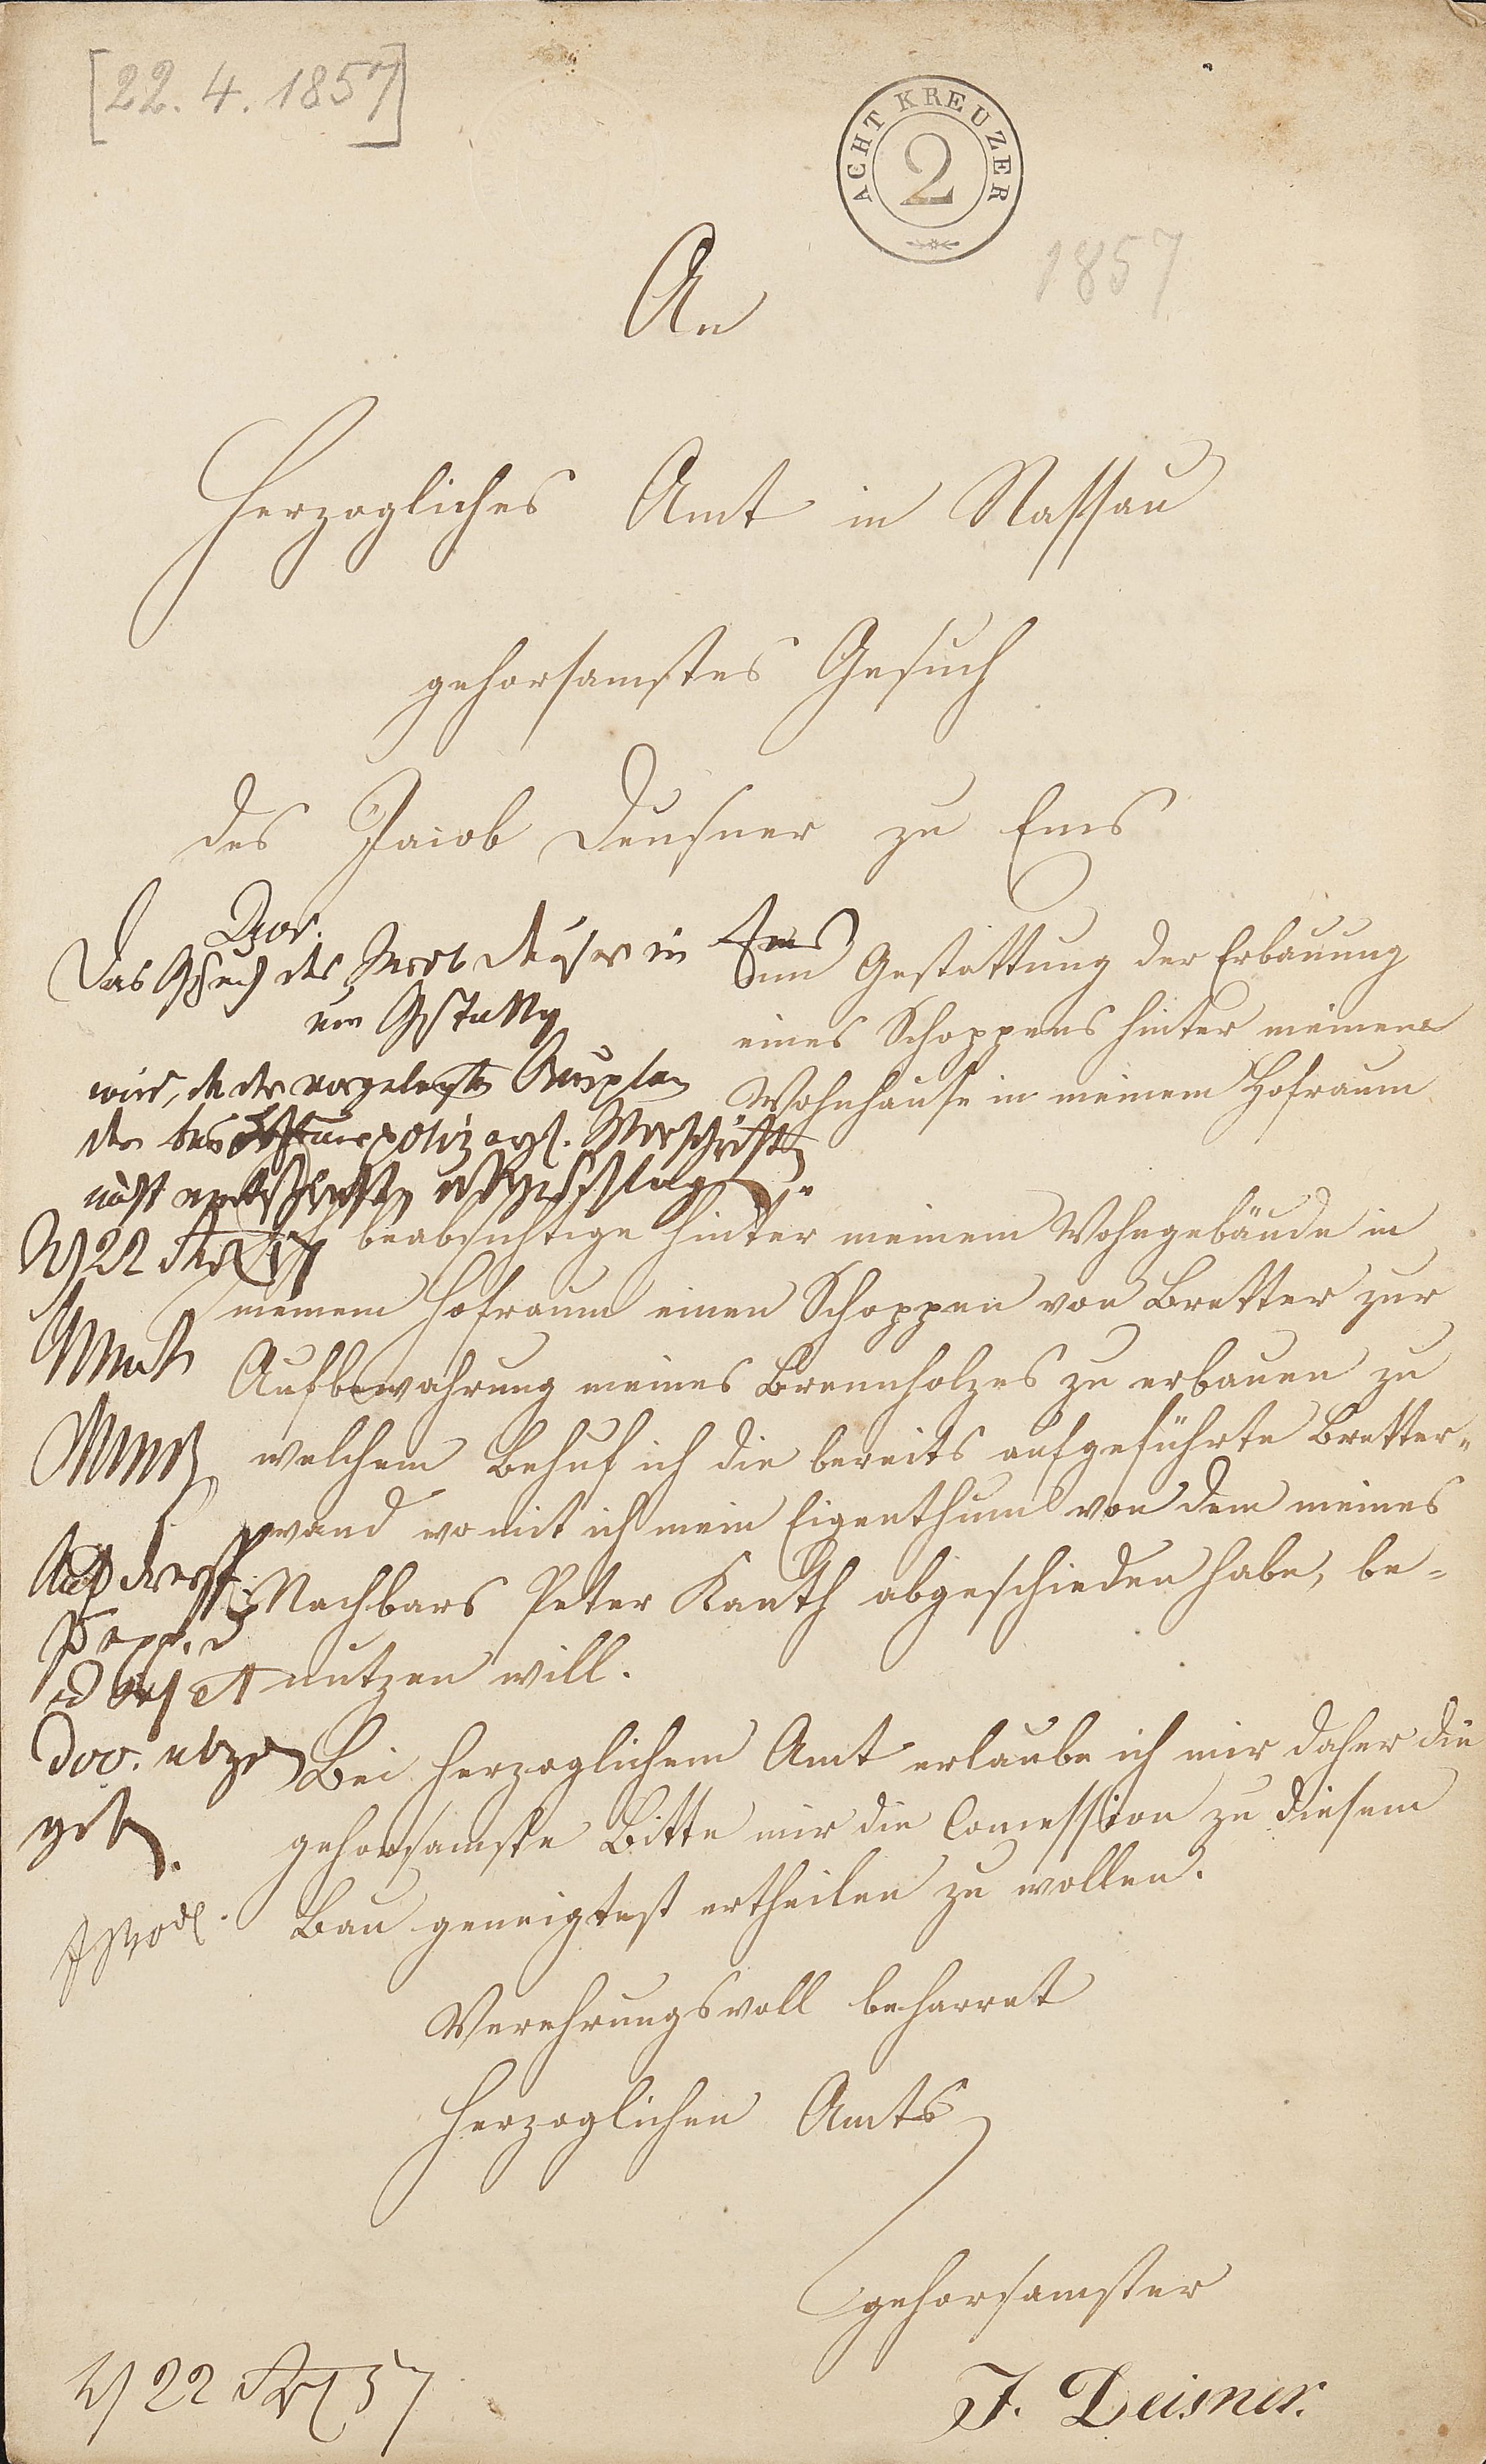 [22. 4. 1857]
ACHT KREUZER
2
1857
An
Herzogliches Amt in Nassau
gehorsamstes Gesuch
des Jacob Deusner zu Ems
um Gestattung der Erbauung
eines Schoppens hinter meinem
Wohnhause in meinem Hofraum
Das Gesuch des Jacob in Ems
um Gestattg
wird, da der vorgelegte Bauplan
der Vorschriften
nicht
beabsichtige hinter meinem Wohngebäude in
meinem Hofraum einen Schoppen von Bretter zur
Aufbewahrung meines Brennholzes zu erbauen zu
welchem Behuf ich die bereits aufgeführte Bretter-
wand womit ich mein Eigenthum von dem meines
Nachbars Peter Kauth abgeschieden habe, be-
nutzen will.
Bei Herzoglichem Amt erlaube ich mir daher die
gehorsamste Bitte mir die Concession zu diesem
Bau geneigtest ertheilen zu wollen.
Verehrungsvoll beharret
Herzoglichen Amts
gehorsamster
J. Deisner.
22 57